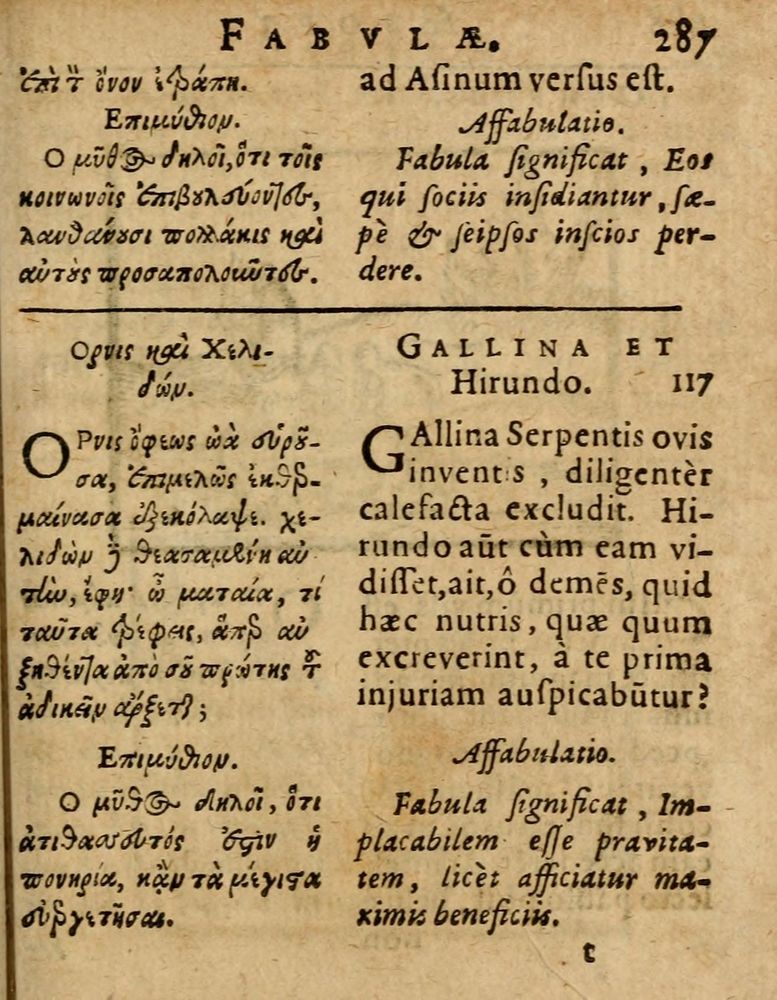 FABVLÆ. 287
ἐπὶ τ̃ ὄνον ἐτράπη.
Επιμύθιον.
Ο μῦθος δηλοῖ, ὅτι τοῖς
κοινωνοῖς ἐπιβουλεύοντες,
λανθάνουσι πολλάκις καὶ
αὐτοὺς προσαπολοιῶτες.
ad Aſinum verſus eſt.
Affabulatio.
Fabula ſignificat, Eos
qui ſociis inſidiantur, ſæ-
pè & ſeipſos inſcios per-
dere.
Ορνις καὶ Χελι-
δών.
ΟΡνις ὄφεως ὠὰ εὑροῦ-
σα, ἐπιμελῶς ἐκθερ-
μαίνασα ἐξεκόλαψε. χε-
λιδὼν δὲ θεασαμένη αὐ
τὴν, ἔφη· ὦ ματαία, τί
ταῦτα τρέφεις, ἅπερ αὐ
ξηθέντα ἀπὸ σοῦ πρώτης τοῦ
ἀδικεῖν ἄρξεται;
Επιμύθιον.
Ο μῦθος δηλοῖ, ὅτι
ἀτιθασσευτός ἐστιν ἡ
πονηρία, κἂν τὰ μέγιστα
εὐεργετῆσαι.
GALLINA ET
Hirundo. 117
GAllina Serpentis ovis
inventis, diligentèr
calefacta excludit. Hi-
rundo aūt cùm eam vi-
diſſet, ait, ô demēs, quid
hæc nutris, quæ quum
excreverint, à te prima
injuriam auſpicabūtur?
Affabulatio.
Fabula ſignificat, Im-
placabilem eſſe pravita-
tem, licèt afficiatur ma-
ximis beneficiis.
t